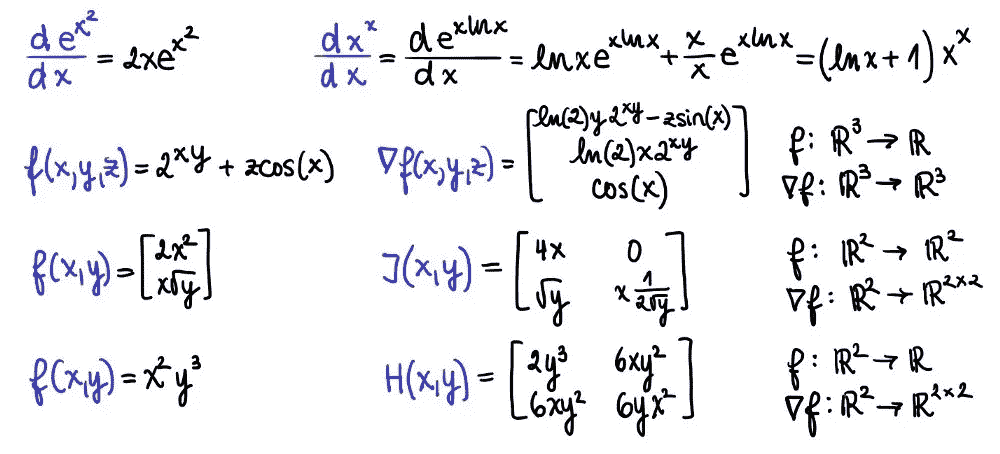 d e^{x^2} / dx = 2xe^{x^2}    d x^x / dx = d e^{x ln x} / dx = ln x e^{x ln x} + x/x e^{x ln x} = (ln x + 1) x^x
f(x,y,z) = 2^{xy} + z cos(x)    ∇f(x,y,z) = [ln(2)y 2^{xy} − z sin(x); ln(2)x 2^{xy}; cos(x)]    f: ℝ^3 → ℝ    ∇f: ℝ^3 → ℝ^3
f(x,y) = [2x^2; x√y]    J(x,y) = [4x  0; √y  x 1/(2√y)]    f: ℝ^2 → ℝ^2    ∇f: ℝ^2 → ℝ^{2×2}
f(x,y) = x^2 y^3    H(x,y) = [2y^3  6xy^2; 6xy^2  6yx^2]    f: ℝ^2 → ℝ    ∇f: ℝ^2 → ℝ^{2×2}